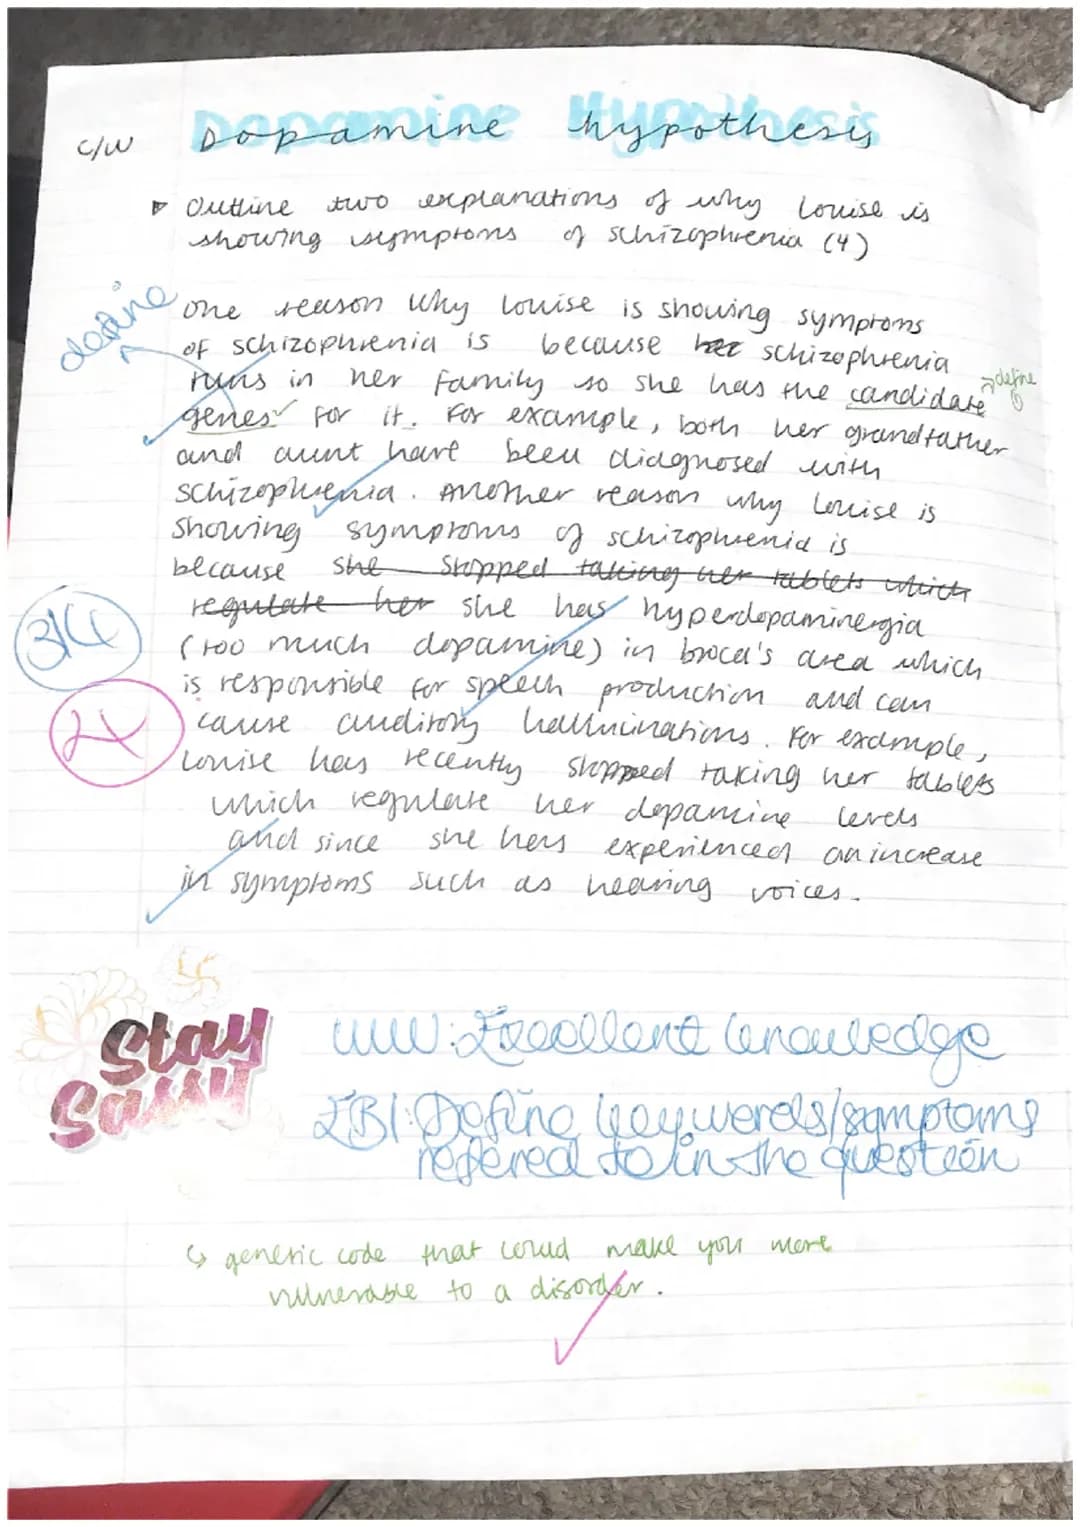 C/W Dopamine hypothesis
▸ Outline two explanations of why Louise is
showing symptoms of schizophrenia (4)
define
One reason why Louise is showing symptoms
of schizophrenia is because her schizophrenia
runs in her family so she has the candidate
define
genes for it. For example, both her grandfather
and aunt have been diagnosed with
schizophrenia. Another reason why Louise is
showing symptoms of schizophrenia is
because she stopped taking her tablets which
regulate her she has hyperdopaminergia
3/4
(too much dopamine) in broca's area which
is responsible for speech production and can
cause auditory hallucinations. For example,
Louise has recently stopped taking her tablets
which regulate her dopamine levels
and since she has experienced an increase
in symptoms such as hearing voices.
Stay
Sassy
WWW: Excellent knowledge
EBI: Define key words/symptoms
refered to in the question
↳ generic code that could make you more
vulnerable to a disorder.